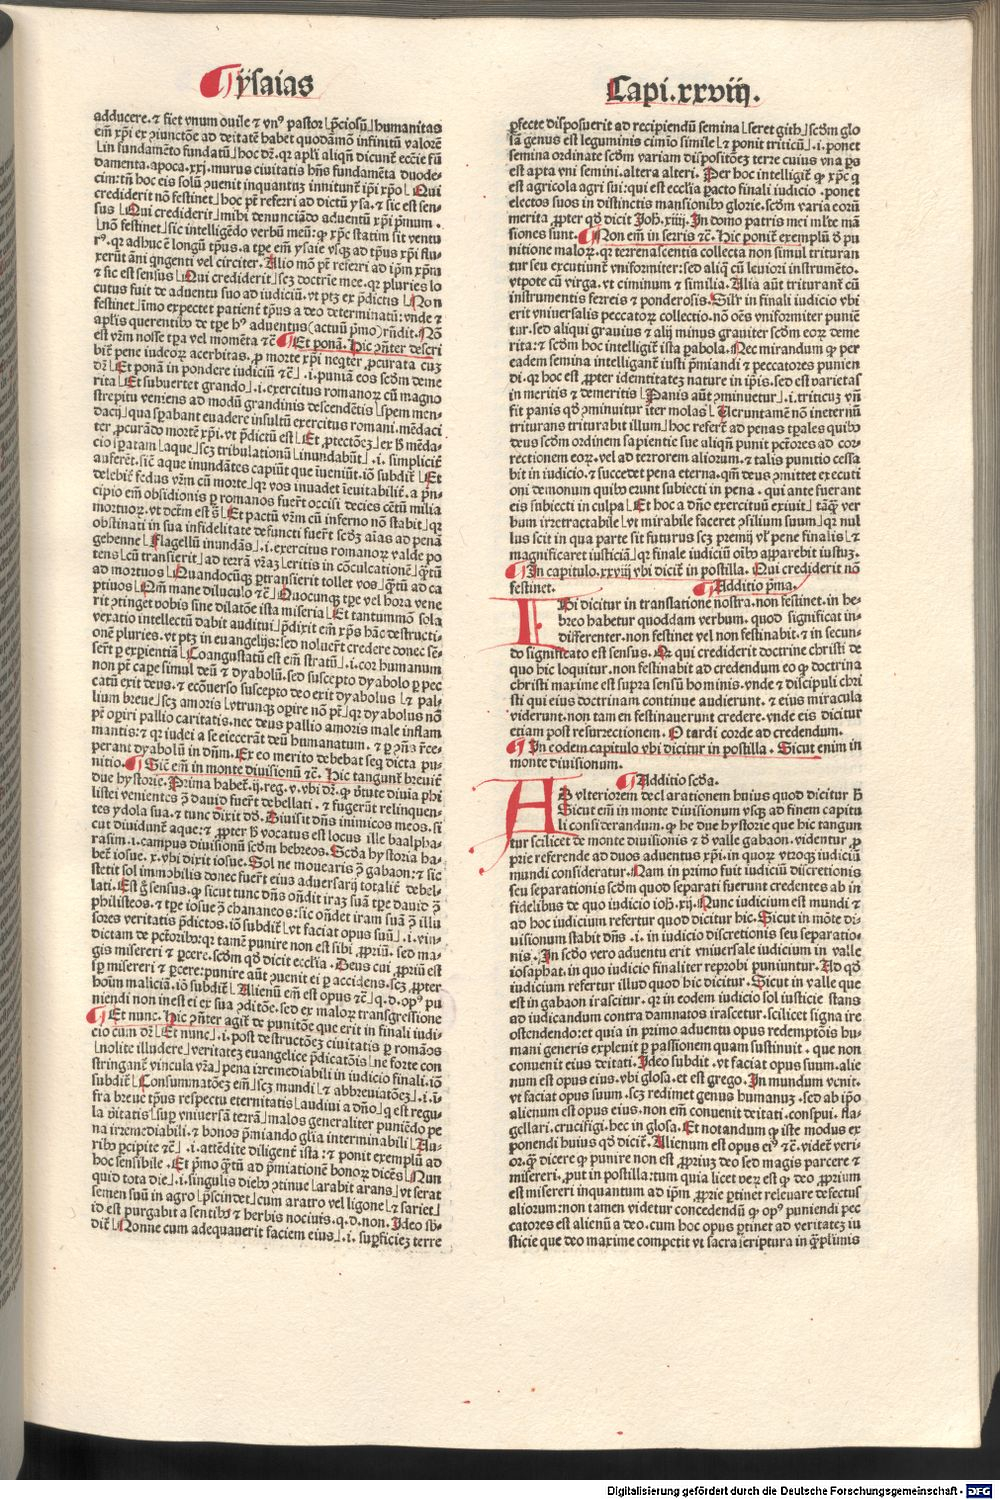 ÿsaias
Capi.xxviij.
adducere.⁊ fiet vnum ouile ⁊ vnꝰ pastor p̄ciosū humanitas
em̄ xp̄i ex ꝯiunctōe ad deitatē habet quodāmō infinitū valorē
in fundamēto fundatū hoc dr̄.qꝛ apl'i aliqn̄ dicunt̄ eccl'ie fū
damenta.apoca.xxj.murus ciuitatis hn̄s fundamēta duode-
cim:tn̄ hoc eis solū ꝯuenit inquantuꝫ innitunt̄ ip̄i xp̄o Qui
crediderit nō festinet hoc pt̄ referri ad dictū ysa.⁊ sic est sen-
sus Qui crediderit mihi denunciādo aduentū xp̄i p̄imum.
nō festinet sic intelligēdo verbū meū:ꝙ xp̄c statim sit ventu
rꝰ.qꝛ adhuc ē longū tp̄us.a tp̄e em̄ ysaie vsqꝫ ad tp̄us xp̄i flu-
xerūt āni qngenti vel circiter.Alio mō pt̄ referri ad ip̄m xp̄m
⁊ sic est sensus Qui crediderit scꝫ doctrīe mee.qꝛ pluries lo
cutus fuit de aduentu suo ad iudiciū.vt ptꝫ ex p̄dictis Non
festinet imo expectet patient̄ tp̄us a deo determinatū:vnde ⁊
apl'is querentibꝰ de tp̄e hꝰ aduentus(actuū p̄mo)rn̄dit.Nō
est vr̄m nosse tp̄a vel momēta ⁊c̄ Et ponā.Hic ꝯn̄ter descri
bit̄ pene iudeoꝝ acerbitas.ꝓ morte xp̄i neqͥter ꝓcurata cuꝫ
dr̄ Et ponā in pondere iudiciū ⁊c̄.i.puniā eos scd̄m deme
rita Et subuertet grando.i.exercitus romanoꝝ cū magno
strepitu veniens ad modū grandinis descendētis spem men-
dacij qua spabant euadere insultū exercitus romani.mēdaci
ter ꝓcurādo mortē xp̄i.vt p̄dictū est Et ꝓtectōeꝫ ex hͨ mēda-
cio spatam aque scꝫ tribulationū inundabūt.i.simplicit̄
auferēt.sic̄ aque inundātes capiūt que īueniūt.iō subdit̄ Et
delebit̄ fedus vr̄m cū morte qꝛ vos inuadet īeuitabilit̄.a p̄n-
cipio em̄ obsidionis ꝑ romanos fuer̄t occisi decies cētū milia
mortuoꝝ.vt dcm̄ est sͣ Et pactū vr̄m cū inferno nō stabit qꝛ
obstinati in sua infidelitate defuncti fuer̄t scd̄ꝫ aīas ad penā
gehenne Flagellū inundās.i.exercitus romanoꝝ valde po
tens cū transierit ad terrā vr̄aꝫ eritis in cōculcationē qͣꝫtū
ad mortuos Quandocūqꝫ ꝑtransierit tollet vos qͣꝫtū ad ca
ptiuos Qm̄ mane diluculo ⁊c̄ Quocunqꝫ tp̄e vel hora vene
rit ꝯtinget vobis sine dilatōe ista miseria Et tantummō sola
vexatio intellectū dabit auditui p̄dixit em̄ xp̄s hāc destructi-
onē pluries.vt ptꝫ in euangelijs:sed noluer̄t credere donec sē-
ser̄t ꝑ expientiā Coangustatū est em̄ stratū.i.cor humanum
non pt̄ cape simul deū ⁊ dyabolū.sed suscepto dyabolo ꝑ pec
catū exit deus.⁊ ecōuerso suscepto deo exit dyabolus ⁊ pal-
lium breue scꝫ amoris vtrunqꝫ opire nō pt̄ qꝛ dyabolus nō
pt̄ opiri pallio caritatis.nec deus pallio amoris male inflam
mantis:⁊ qꝛ iudei a se eiecerāt deū humanatum.⁊ ꝑ ꝯn̄s rece-
perant dyabolū in dn̄m.Et eo merito debebat seq̄ dicta pu-
nitio.Sic̄ em̄ in monte diuisionū ⁊c̄.Hic tangunt̄ breuit̄
due hystorie.Prima habet̄.ij.reg.v.vbi dr̄.ꝙ v̄tute diuia phi
listei venientes ꝯ dauid fuer̄t debellati.⁊ fugerūt relinquen-
tes ydola sua.⁊ tunc dixit dd̄.Diuisit dn̄s inimicos meos.si
cut diuidunt̄ aque:⁊ ꝓpter hͨ vocatus est locus ille baalpha-
rasim.i.campus diuisionū scd̄m hebreos.Scd̄a hystoria ha-
bet̄ iosue.x.vbi dixit iosue.Sol ne mouearis ꝯ gabaon:⁊ sic
stetit sol immobilis donec fuer̄t eius aduersarij totalit̄ debel-
lati.Est gͦ sensus.ꝙ sicut tunc dn̄s on̄dit iraꝫ suā tp̄e dauid ꝯ
philisteos.⁊ tp̄e iosue ꝯ chananeos:sic on̄det iram suā ꝯ illu
sores veritatis p̄dictos.iō subdit̄ vt faciat opus suū.i.vin-
dictam de pct̄oribꝰ:qꝛ tamē punire non est sibi ꝓpriū.sed ma-
gis misereri ⁊ ꝑcere.scd̄m qd̄ dicit eccl'ia.Deus cui ꝓpriū est
sp̄ misereri ⁊ ꝑcere:punire aūt ꝯuenit ei ꝑ accidens.scꝫ ꝓpter
hoīum maliciā.iō subdit̄ Alienū em̄ est opus ⁊c̄ q.d.opꝰ pu
niendi non inest ei ex sua ꝯditōe.sed ex maloꝝ transgressione
Et nunc.Hic ꝯn̄ter agit̄ de punitōe que erit in finali iudi-
cio cum dr̄ Et nunc.i.post destructōeꝫ ciuitatis ꝑ romāos
nolite illudere veritateꝫ euangelice p̄dicatōis ne forte con
stringant̄ vincula vr̄a pena irremediabili in iudicio finali.iō
subdit̄ Consummatōeꝫ em̄ scꝫ mundi ⁊ abbreuiatōeꝫ.i.ī-
fra breue tp̄us respectu eternitatis audiui a dn̄o q̄ est regu
la v̄itatis sup vniuersā terrā malos generaliter puniēdo pe
na irremediabili.⁊ bonos p̄miando gl'ia interminabili Au-
ribꝰ ꝑcipite ⁊c̄.i.attēdite diligent̄ ista:⁊ ponit exemplū ad
hoc sensibile.Et p̄mo qͣꝫtū ad p̄miationē bonoꝝ dicēs Nun
quid tota die.i.singulis diebꝰ ꝯtinue arabit arans vt serat
semen suū in agro ꝓscindet cum aratro vel ligone ⁊ sariet
id est purgabit a sentibꝰ ⁊ herbis nociuis.q.d.non.Ideo sb-
dit̄ Nonne cum adequauerit faciem eius.i.suꝑficieꝫ terre
ꝑfecte disposuerit ad recipiendū semina seret gith scd̄m glo
sā genus est leguminis cimīo simile ⁊ ponit triticū.i.ponet
semina ordinate scd̄m variam dispositōeꝫ terre cuius vna ꝑs
est apta vni semini.altera alteri.Per hoc intelligit̄ ꝙ xp̄c q̄
est agricola agri sui:qui est eccl'ia ꝑacto finali iudicio.ponet
electos suos in distinctis mansionibꝰ glorie.scd̄m varia eoꝝ
merita ꝓpter qd̄ dicit Joh.xiiij.In domo patris mei ml'te mā
siones sunt.Non em̄ in serris ⁊c̄.Hic ponit̄ exemplū d̄ pu
nitione maloꝝ.qꝛ terrenascentia collecta non simul trituran
tur seu excutiunt̄ vniformiter:sed aliq̄ cū leuiori instrumēto.
vtpote cū virga.vt ciminum ⁊ similia.Alia aūt triturant̄ cū
instrumentis ferreis ⁊ ponderosis.Silr̄ in finali iudicio vbi
erit vniuersalis peccatoꝝ collectio.nō oēs vniformiter puniē
tur.sed aliqui grauius ⁊ alij minus grauiter scd̄m eoꝝ deme
rita:⁊ scd̄m hoc intelligit̄ ista ꝑabola.Nec mirandum ꝙ per
eadem semina intelligant̄ iusti p̄miandi ⁊ peccatores punien
di.qꝛ hoc est ꝓpter idemtitateꝫ nature in ip̄is.sed est varietas
in meritis ⁊ demeritis Panis aūt ꝯminuetur.i.triticuꝫ vn̄
fit panis qd̄ ꝯminuitur īter molas Veruntamē nō ineternū
triturans triturabit illum hoc refert̄ ad penas tp̄ales quibꝰ
deus scd̄m ordinem sapientie sue aliqn̄ punit pctōres ad cor-
rectionem eoꝝ.vel ad terrorem aliorum.⁊ talis punitio cessa
bit in iudicio.⁊ succedet pena eterna.qm̄ deus ꝯmittet executi
oni demonum quibꝰ erunt subiecti in pena.qui ante fuerant
eis subiecti in culpa Et hoc a dn̄o exercituū exiuit tāqͣꝫ ver
bum irretractabile vt mirabile faceret ꝯsilium suum qꝛ nul
lus scit in qua parte sit futurus scꝫ premij vl' pene finalis ⁊
magnificaret iusticiā qꝛ finale iudiciū oībꝰ apparebit iustuꝫ.
In capitulo.xxviij vbi dicit̄ in postilla.Qui crediderit nō
festinet.
Additio p̄ma.
Ibi dicitur in translatione nostra.non festinet.in he-
breo habetur quoddam verbum.quod significat in-
differenter.non festinet vel non festinabit.⁊ in secun-
do significato est sensus.Qꝛ qui crediderit doctrine christi de
quo hic loquitur.non festinabit ad credendum eo ꝙ doctrina
christi maxime est supra sensū hominis.vnde ⁊ discipuli chri
sti qui eius doctrinam continue audierunt.⁊ eius miracula
viderunt.non tam en festinauerunt credere.vnde eis dicitur
etiam post resurrectionem.O tardi corde ad credendum.
In eodem capitulo vbi dicitur in postilla.Sicut enim in
monte diuisionum.
Additio scd̄a.
AD vlteriorem declarationem huius quod dicitur hͨ
Sicut em̄ in monte diuisionum vsqꝫ ad finem capitu
li considerandum.ꝙ he due hystorie que hic tangun
tur scilicet de monte diuisionis ⁊ d̄ valle gabaon.videntur ꝓ
prie referende ad duos aduentus xp̄i.in quoꝝ vtroqꝫ iudiciū
mundi consideratur.Nam in primo fuit iudiciū discretionis
seu separationis scd̄m quod separati fuerunt credentes ab in
fidelibus de quo iudicio ioh.xij.Nunc iudicium est mundi ⁊
ad hoc iudicium refertur quod dicitur hic.Sicut in mōte di-
uisionum stabit dn̄s.i.in iudicio discretionis seu separatio-
nis.In scd̄o vero aduentu erit vniuersale iudicium in valle
iosaphat.in quo iudicio finaliter reprobi puniuntur.Ad qd̄
iudicium refertur illud quod hic dicitur.Sicut in valle que
est in gabaon irascitur.qꝛ in eodem iudicio sol iusticie stans
ad iudicandum contra damnatos irascetur.scilicet signa ire
ostendendo:et quia in primo aduentu opus redemptōis hu-
mani generis expleuit ꝑ passionem quam sustinuit.que non
conuenit eius deitati.Ideo subdit.vt faciat opus suum.alie
num est opus eius.vbi glosa.et est grego.In mundum venit.
vt faciat opus suum.scꝫ redimet genus humanuꝫ.sed ab ip̄o
alienum est opus eius.non em̄ conuenit deitati.conspui.fla-
gellari.crucifigi.hec in glosa.Et notandum ꝙ iste modus ex
ponendi huius qd̄ dicit̄.Alienum est opus eiꝰ ⁊c̄.videt̄ veri-
or.qͣꝫ dicere ꝙ punire non est ꝓpriuꝫ deo sed magis parcere ⁊
misereri.ꝓut in postilla:tum quia licet veꝝ est ꝙ deo ꝓprium
est misereri inquantum ad ip̄m ꝓprie ꝑtinet releuare defectus
aliorum:non tamen videtur concedendū ꝙ opꝰ puniendi pec
catores est alienū a deo.cum hoc opus ꝑtinet ad veritateꝫ iu
sticie que deo maxime competit vt sacra scriptura in qͣꝫplīmis
Digitalisierung gefördert durch die Deutsche Forschungsgemeinschaft - DFG